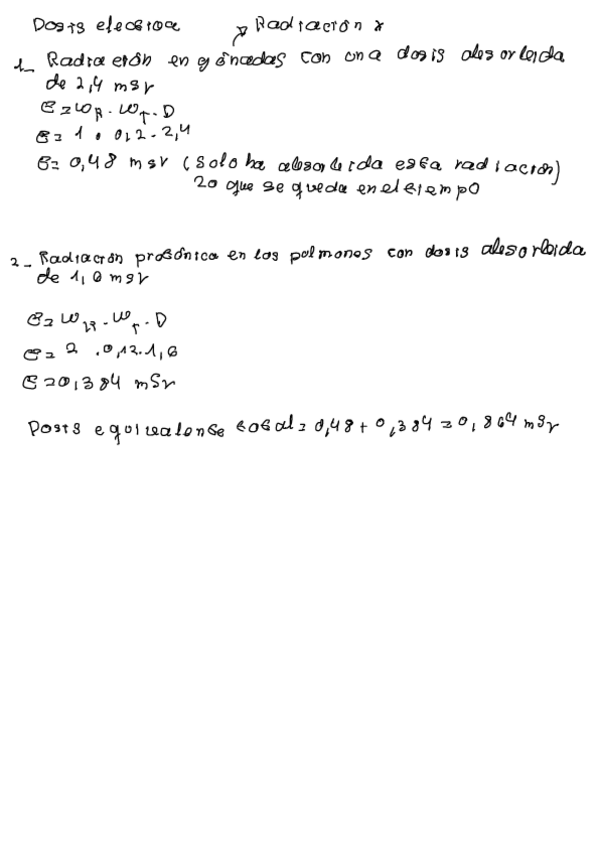 Dosis efectiva
Radiación x
1- Radiación en gónadas con una dosis absorbida
de 2,4 msv
E = WR . WT . D
E = 1 . 0,2 . 2,4
E = 0,48 msv (solo ha absorbida esta radiación)
lo que se queda en el tiempo
2- Radiación protónica en los pulmones con dosis absorbida
de 1,6 msv
E = WR . WT . D
E = 2 . 0,12 . 1,6
E = 0,384 mSv
Dosis equivalente total = 0,48 + 0,384 = 0,864 mSv